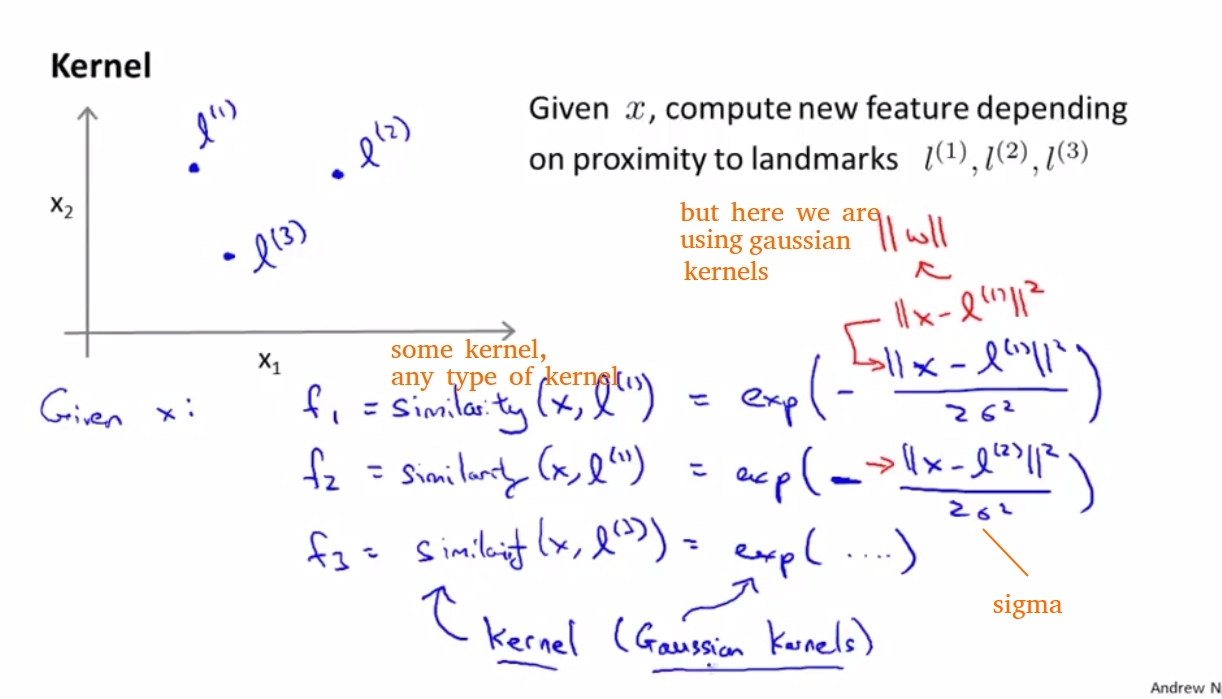 Kernel
l⁽¹⁾
l⁽²⁾
x₂
l⁽³⁾
x₁
Given x, compute new feature depending
on proximity to landmarks l⁽¹⁾, l⁽²⁾, l⁽³⁾
but here we are
using gaussian
kernels
||w||
||x - l⁽¹⁾||²
some kernel,
any type of kernel
Given x: f₁ = similarity (x, l⁽¹⁾) = exp( - ||x - l⁽¹⁾||² / 2σ² )
f₂ = similarity (x, l⁽¹⁾) = exp( - ||x - l⁽²⁾||² / 2σ² )
f₃ = similarity (x, l⁽³⁾) = exp( .... )
sigma
kernel (Gaussian kernels)
Andrew N